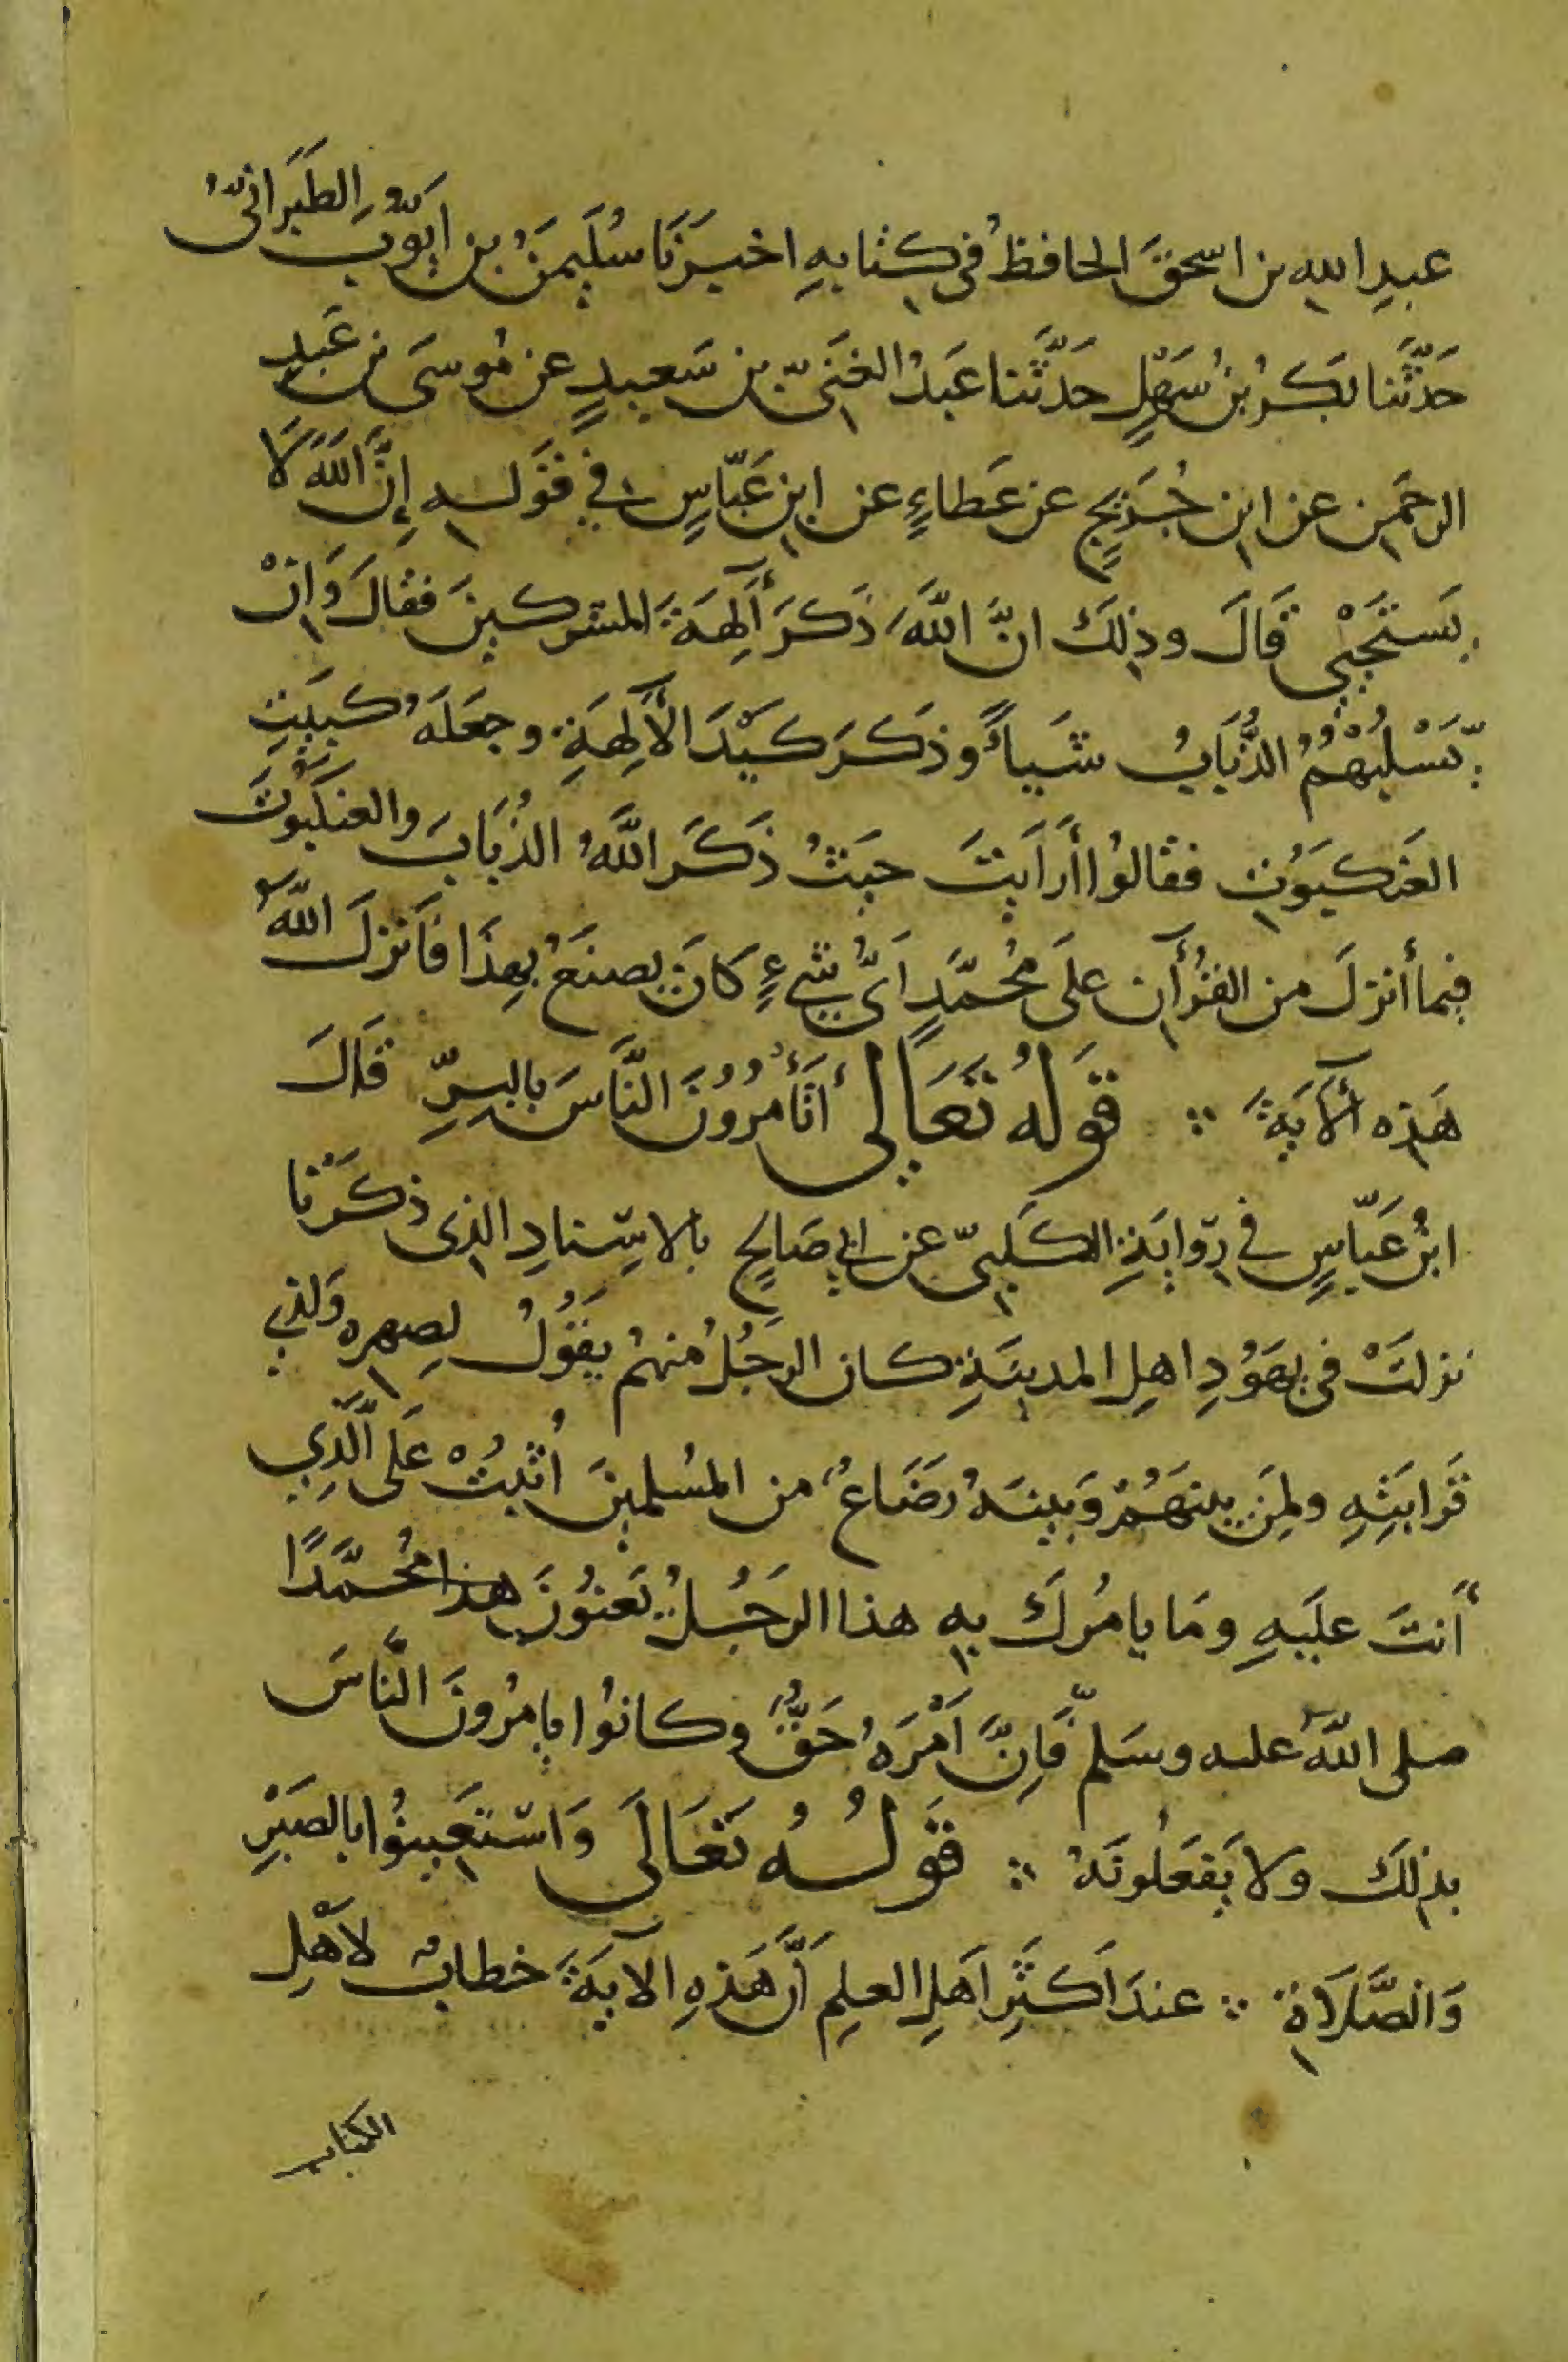 عبدِ اللهِ بن اسحقَ الحافظُ فى كتابهِ اخبرَنَا سُلَيمَنُ بن ايّوبَ الطَبَرانىّ
حَدَّثَنا بَكرُ بنُ سَهْلٍ حَدَّثَنا عَبدُ الغَنىّ بن سَعيدٍ عن مُوسَى بن عَبدِ
الرحمَنِ عن ابن جُرَيجٍ عن عَطاءٍ عن ابنِ عَبّاسٍ في قَولـه إِنَّ اللَّهَ لَا
يَستَحْيي قَالَ وذلِكَ انَّ اللَّهَ ذَكَرَ أَلِهَةَ المشركينَ فقالَ وَإِنْ
يَسْلُبْهُمُ الذُّبَابُ شَياءً وذَكَرَ كَيْدَ الآلِهَةِ وجعَلَهُ كبَيتِ
العَنكبَوُتِ فقالوُا أَرَاَيتَ حيَثُ ذَكَرَ اللَّهُ الذُبَابَ والعنكَبُوتَ
فيما أنزلَ من القُرْآنِ علَى مُحُمَّدٍ اَىُّ شىءٍ كَانَ يصنَعُ بهِذَا فَاَنزلَ اللَّهُ
هَذِه الآيةَ ∴ قَولُهُ تَعَالَى أتَأمُرُونَ النَّاسَ بالبِرِّ قالَ
ابنُ عَبّاسٍ في رِوايَةِ الكَلبىّ عن ابي صَالحٍ بالاسِنادِ الذِى ذكَرْنا
نزلَتْ فى يهَوُدِ اهلِ المدينَةِ كان الرجُلُ منهُمْ يقَوُلُ لصِهرِه وَلذي
قَرابَتِهِ ولمِنَ بينهَمُ وَبينَهُ رضَاعٌ من المسُلمينَ اُثبُتْ عَلَى الَّذِي
اَنتَ علَيهِ ومَا يامُركَ بهِ هذا الرجُلُ يَعنُونَ هذا مُحُمَّدًا
صلى اللَّه عليه وسَلم فَاِنَّ اَمْرَهُ حَقٌّ وكانوُا يامُرُونَ النَّاسَ
بذلكَ ولا يَفعَلُونَهُ ∴ قَولُـهُ تَعَالَى وَاستَعِينُوا بالصَبْرِ
وَالصَّلَاةِ ∴ عندَ اَكثَرِ اَهلِ العلِمِ اَنَّ هَذِهِ الآيَةَ خطابٌ لاَهْلِ
الكتاب